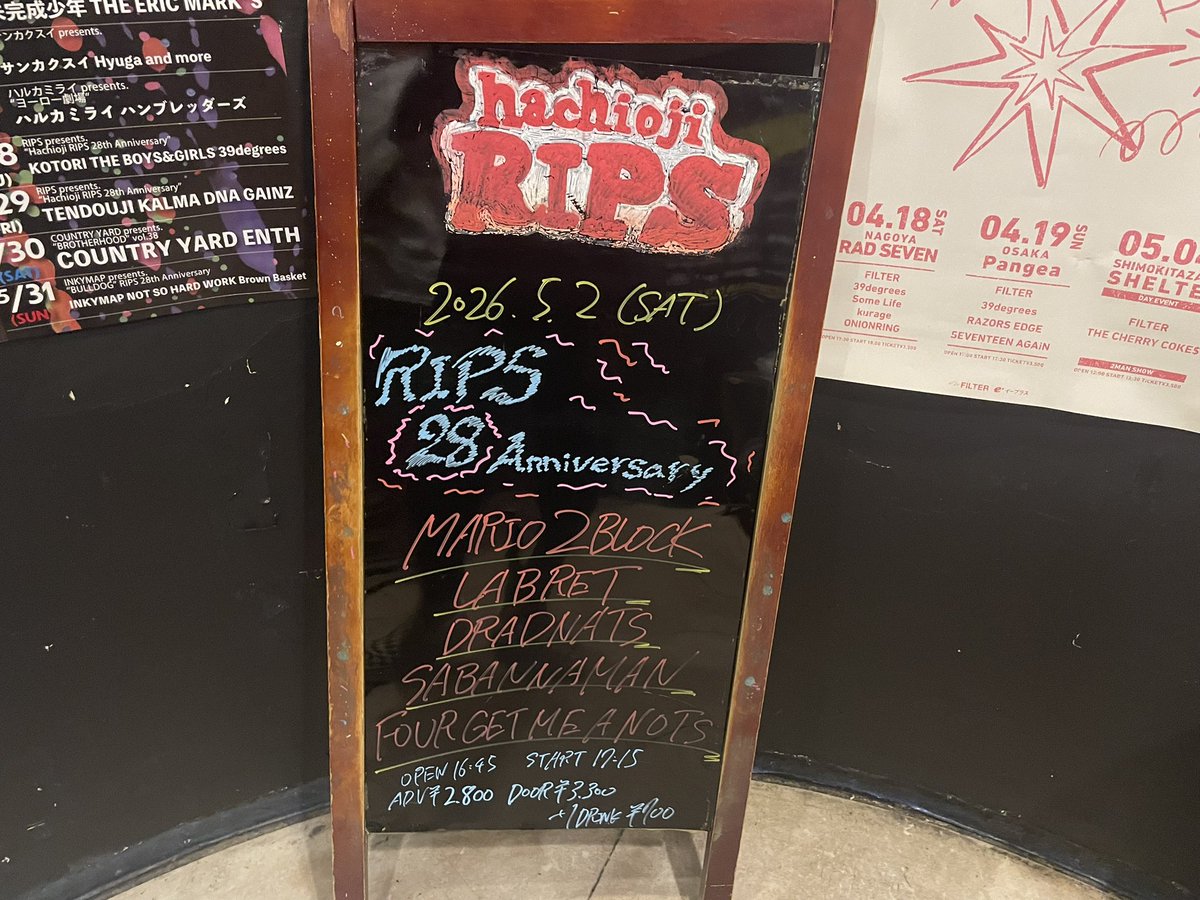 未完成少年 THE ERIC MARK'S
サンカクスイ presents.
サンカクスイ Hyuga and more
ハルカミライ presents.
"ヨーロー劇場"
ハルカミライ ハンブレッダーズ
8
RIPS presents.
"Hachioji RIPS 28th Anniversary"
KOTORI THE BOYS&GIRLS 39degrees
29
RIPS presents.
"Hachioji RIPS 28th Anniversary"
TENDOUJI KALMA DNA GAINZ
(FRI)
/30
COUNTRY YARD presents.
"BROTHERHOOD" vol.38
COUNTRY YARD ENTH
(SAT)
5/31
INKYMAP presents.
"BULLDOG" RIPS 28th Anniversary
INKYMAP NOT SO HARD WORK Brown Basket
(SUN)
hachioji
RIPS
2026.5.2 (SAT)
RIPS
28 Anniversary
MARIO2BLOCK
LABRET
DRADNATS
SABANNAMAN
FOUR GET ME A NOTS
OPEN 16:45 START 17:15
ADV ¥2.800 DOOR ¥3.300
+1DRINK ¥700
04.18 SAT
NAGOYA
RAD SEVEN
FILTER
39degrees
Some Life
kurage
ONIONRING
OPEN 17:30 START 18:00 TICKET¥3,500
04.19 SUN
OSAKA
Pangea
FILTER
39degrees
RAZORS EDGE
SEVENTEEN AGAiN
OPEN 17:00 START 17:30 TICKET¥3,500
05.0
SHIMOKITAZA
SHELTE
DAY EVENT
FILTER
THE CHERRY COKES
2MAN SHOW
OPEN 12:00 START 12:30 TICKET¥3,500
FILTER e+イープラス